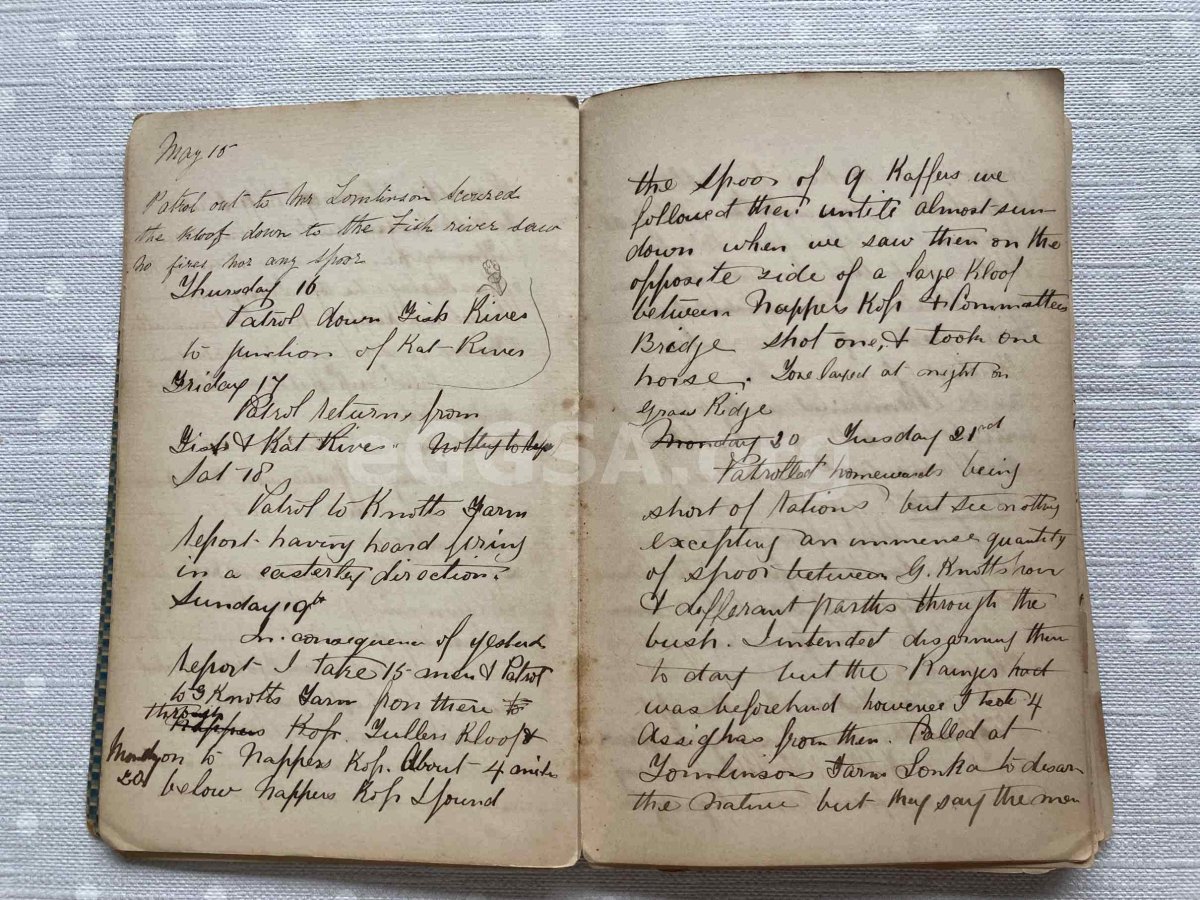 May 15
Patrol out to Mr Tomlinson scoured
the kloof down to the Fish river saw
no fires nor any spoor
Thursday 16
Patrol down Fish River
to junction of Kat River
Friday 17
Patrol returns from
Fish & Kat River
Sat 18
Patrol to Knotts Farm
report having heard firing
in a easterley direction.
Sunday 19th
In consequence of yesterd
report I take 15 men & Patrol
to G Knotts Farm from there to
through
Nappers Kop. Fullers Kloof &
Monday on to Nappers Kop. About 4 miles
20 below Nappers Kop I found
the spoor of 9 Kaffers we
followed them untile almost sun
down when we saw them on the
opposite side of a large Kloof
between Nappers Kop & Committees
Bridge shot one, & took one
horse. at night on
Grass Ridge
Monday 20 Tuesday 21rd
Patrolled homewards being
short of rations but see nothing
excepting an immense quantity
of spoor between G. Knotts
& differant parths through the
bush. I intended disarming them
to day but the Ranges had
was beforehand however I took 4
Assighas from them. Called at
Tomlinsons Farm to disarm
the native but they say the men
eGGSA.org